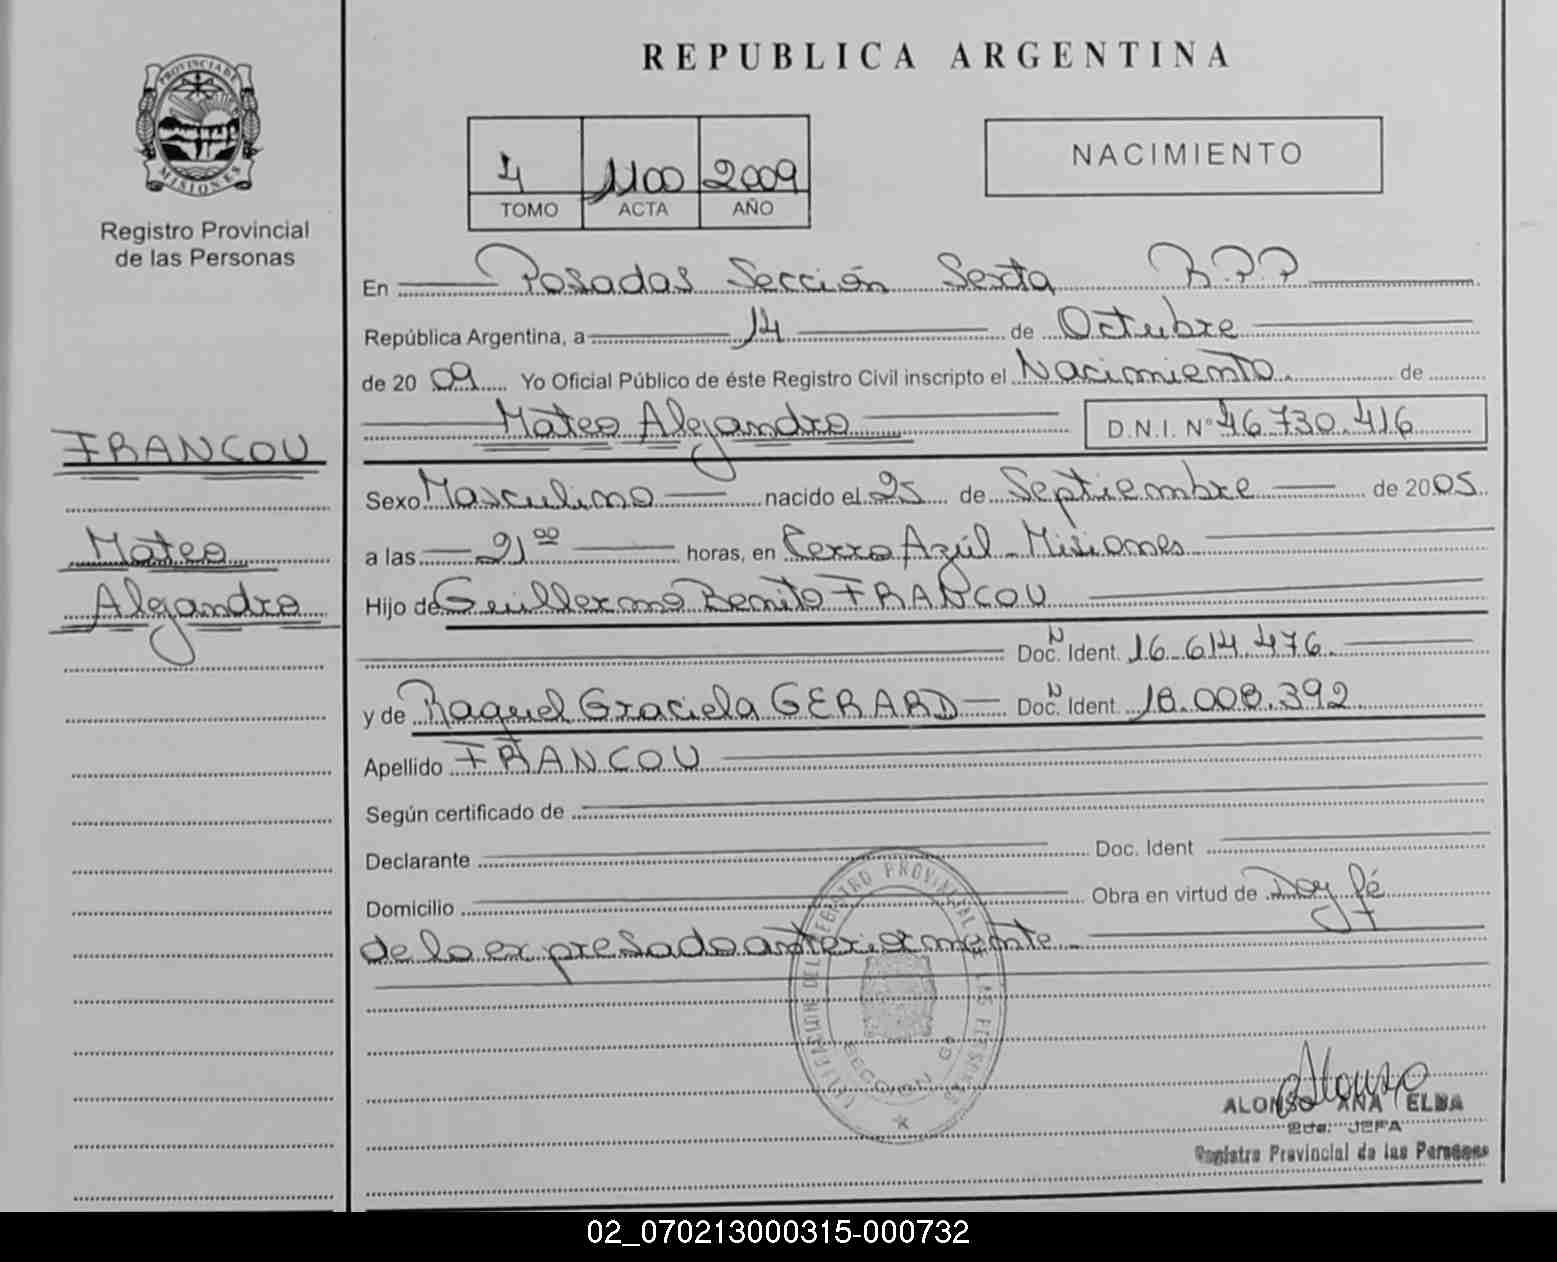 PROVINCIA DE
MISIONES
Registro Provincial
de las Personas
FRANCOU
Mateo
Alejandro
REPUBLICA ARGENTINA
4 1100 2009
TOMO ACTA AÑO
NACIMIENTO
En Posadas Sección Sexta R.P.P
República Argentina, a 14 de Octubre
de 2009 Yo Oficial Público de éste Registro Civil inscripto el Nacimiento. de
Mateo Alejandro D.N.I. Nº 46.730.416
Sexo Masculino nacido el 25 de Septiembre de 2005
a las 21 00 horas, en Cerro Azúl - Misiones
Hijo de Guillermo Benito FRANCOU
N
Doc. Ident. 16.614.476.
y de Raquel Graciela GERARD - Doc. N Ident. 18.008.392
Apellido FRANCOU
Según certificado de
Declarante Doc. Ident
Domicilio Obra en virtud de Doy fé
de lo expresado anteriormente.
DEL REGISTRO PROVINCIAL LAS PERSONAS
SECCION 6ª
Alonso
ALONSO ANA ELBA
2da. JEFA
Registro Provincial de las Personas
02_070213000315-000732